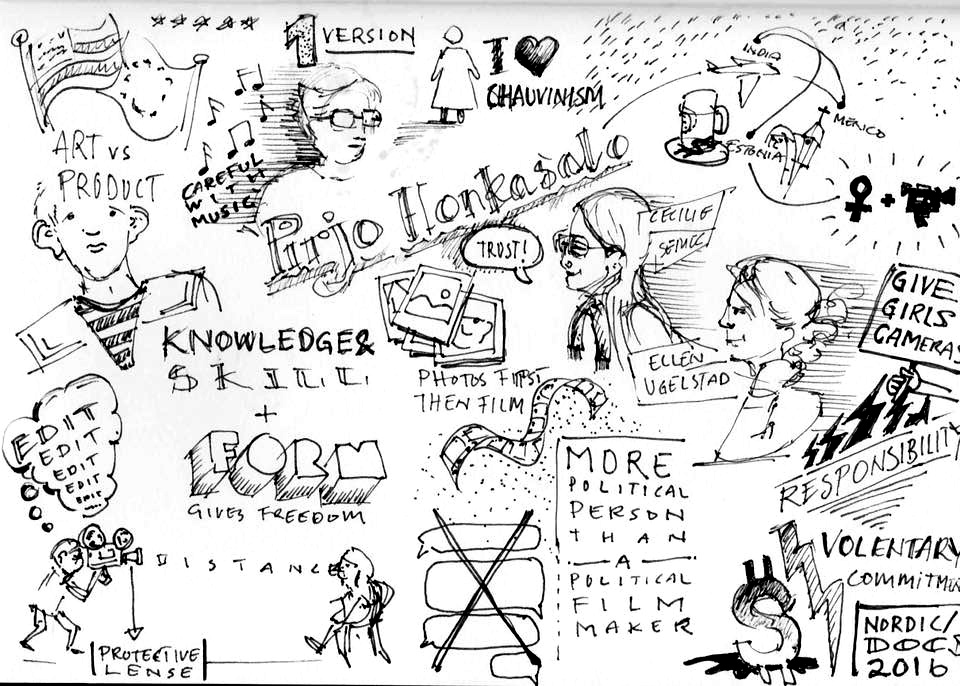 1 VERSION
I ♥
CHAUVINISM
INDIA
MEXICO
ESTONIA
ART VS
PRODUCT
CAREFUL
WITH
MUSIC
Pirjo Honkasalo
TRUST!
CECILIE
SEMEC
GIVE
GIRLS
CAMERAS
ELLEN
UGELSTAD
RESPONSIBILITY
KNOWLEDGE &
SKILL
+
FORM
GIVES FREEDOM
PHOTOS FIRST
THEN FILM
EDIT
EDIT
EDIT
EDIT
EDIT
DISTANCE
PROTECTIVE
LENSE
MORE
POLITICAL
PERSON
THAN
A
POLITICAL
FILM
MAKER
VOLENTARY
COMMITMEN
NORDIC/
DOCS
2016